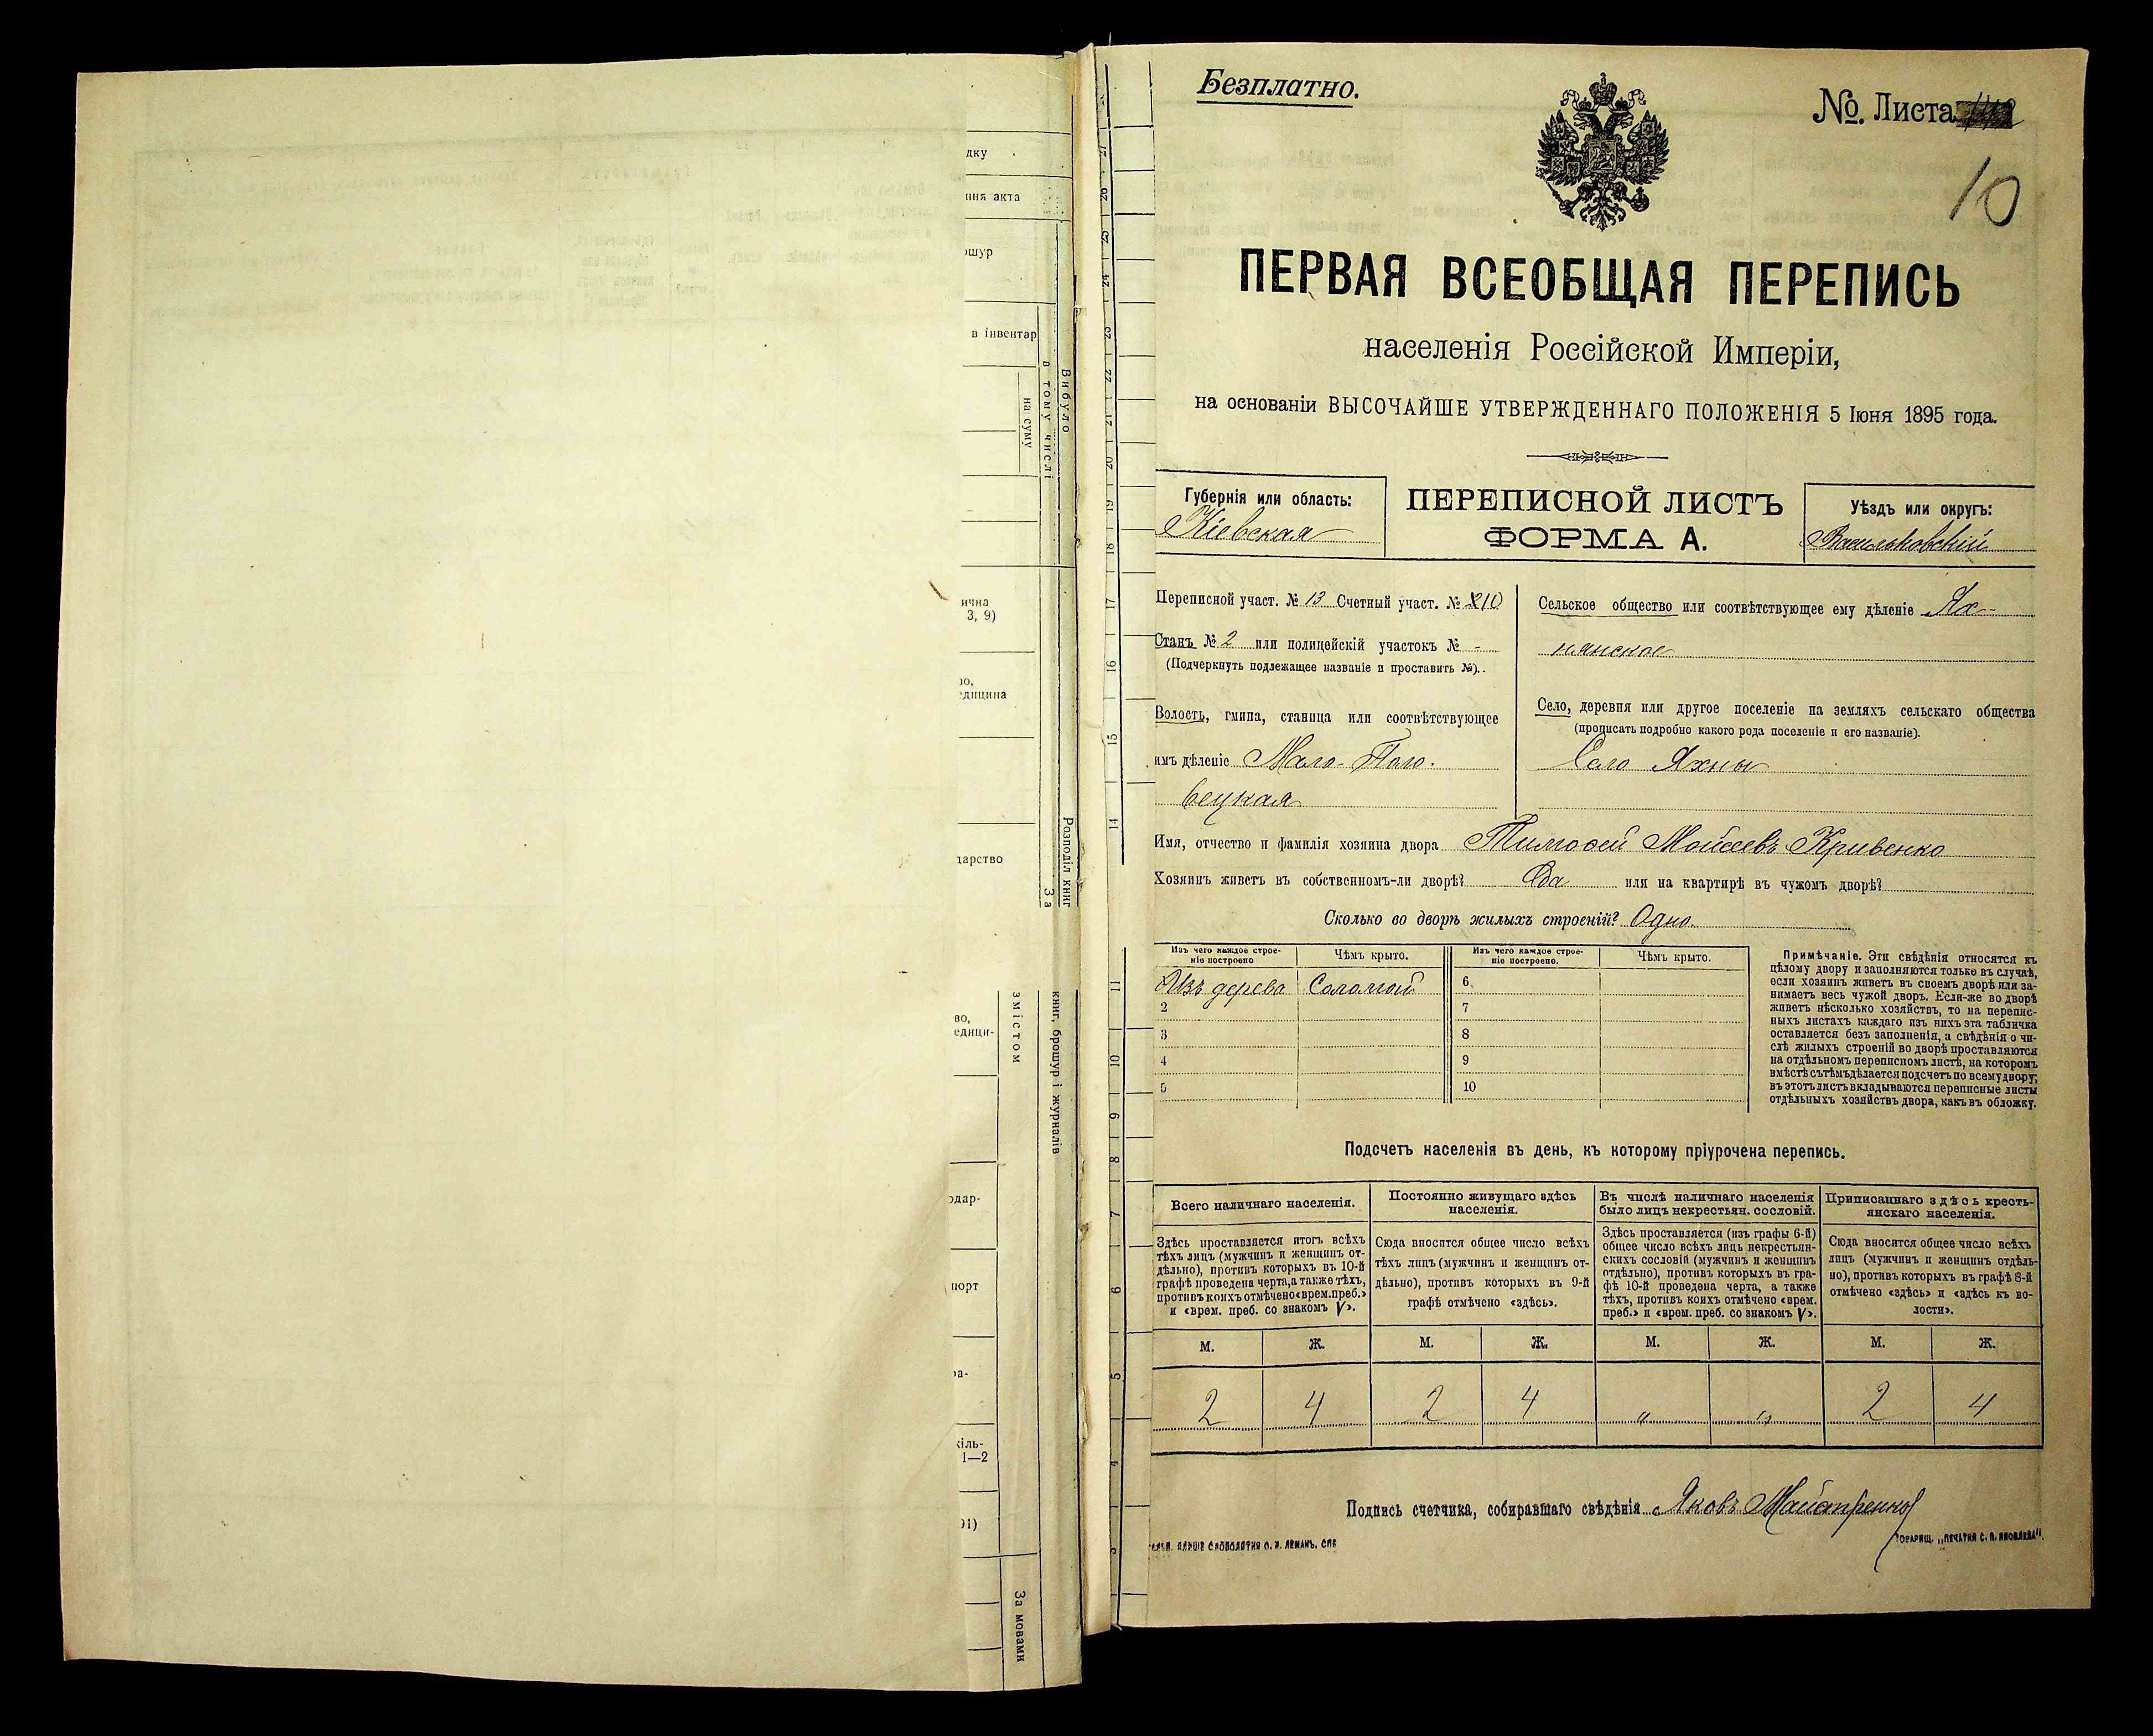 дку
ння акта
ошур
в інвентар
на суму
в тому числі
Вибуло
ична
3, 9)
во,
едицина
дарство
Розподіл книг
За
во,
едици-
змістом
книг, брошур і журналів
одар-
порт
ра-
кіль-
1—2
91)
За мовами
27
26
25
24
23
22
21
20
19
18
17
16
15
14
11
10
9
8
7
6
5
4
3
Безплатно.
№. Листа
10
ПЕРВАЯ ВСЕОБЩАЯ ПЕРЕПИСЬ
населенія Россійской Имперіи,
на основаніи ВЫСОЧАЙШЕ УТВЕРЖДЕННАГО ПОЛОЖЕНІЯ 5 Іюня 1895 года.
Губернія или область:
Кіевская
ПЕРЕПИСНОЙ ЛИСТЪ
ФОРМА А.
Уѣздъ или округъ:
Васильковскій
Переписной участ. № 13 Счетный участ. № 10
Станъ № 2 или полицейскій участокъ № -
(Подчеркнуть подлежащее названіе и проставить №).
Волость, гмина, станица или соотвѣтствующее
имъ дѣленіе Мало-Поло-
вецкая
Сельское общество или соотвѣтствующее ему дѣленіе Ях-
нянское
Село, деревня или другое поселеніе на земляхъ сельскаго общества
(прописать подробно какого рода поселеніе и его названіе).
Село Яхны
Имя, отчество и фамилія хозяина двора Тимоѳей Мойсеевъ Кривенко
Хозяинъ живетъ въ собственномъ-ли дворѣ? Да или на квартирѣ въ чужомъ дворѣ?
Сколько во дворѣ жилыхъ строеній? Одно.
Изъ чего каждое строе-
ніе построено
Чѣмъ крыто.
Изъ чего каждое строе-
ніе построено.
Чѣмъ крыто.
Изъ дерева Соломой 6
2 7
3 8
4 9
5 10
Примѣчаніе. Эти свѣдѣнія относятся къ
цѣлому двору и заполняются только въ случаѣ,
если хозяинъ живетъ въ своемъ дворѣ или за-
нимаетъ весь чужой дворъ. Если-же во дворѣ
живетъ нѣсколько хозяйствъ, то на перепис-
ныхъ листахъ каждаго изъ нихъ эта табличка
оставляется безъ заполненія, а свѣдѣнія о чи-
слѣ жилыхъ строеній во дворѣ проставляются
на отдѣльномъ переписномъ листѣ, на которомъ
вмѣстѣ съ тѣмъ дѣлается подсчетъ по всему двору;
въ этотъ листъ вкладываются переписные листы
отдѣльныхъ хозяйствъ двора, какъ въ обложку.
Подсчетъ населенія въ день, къ которому пріурочена перепись.
Всего наличнаго населенія.
Здѣсь проставляется итогъ всѣхъ
тѣхъ лицъ (мужчинъ и женщинъ от-
дѣльно), противъ которыхъ въ 10-й
графѣ проведена черта, а также тѣхъ,
противъ коихъ отмѣчено «врем. преб.»
и «врем. преб. со знакомъ V».
Постоянно живущаго здѣсь
населенія.
Сюда вносится общее число всѣхъ
тѣхъ лицъ (мужчинъ и женщинъ от-
дѣльно), противъ которыхъ въ 9-й
графѣ отмѣчено «здѣсь».
Въ числѣ наличнаго населенія
было лицъ некрестьян. сословій.
Здѣсь проставляется (изъ графы 6-й)
общее число всѣхъ лицъ некрестьян-
скихъ сословій (мужчинъ и женщинъ
отдѣльно), противъ которыхъ въ гра-
фѣ 10-й проведена черта, а также
тѣхъ, противъ коихъ отмѣчено «врем.
преб.» и «врем. преб. со знакомъ V».
Приписаннаго здѣсь кресть-
янскаго населенія.
Сюда вносится общее число всѣхъ
лицъ (мужчинъ и женщинъ отдѣль-
но), противъ которыхъ въ графѣ 8-й
отмѣчено «здѣсь» и «здѣсь къ во-
лости».
М. Ж. М. Ж. М. Ж. М. Ж.
2 4 2 4 " " 2 4
Подпись счетчика, собиравшаго свѣдѣнія Яковъ Майстренко
О. И. ЛЕМАНЪ, СПБ
ТОВАРИЩ. „ПЕЧАТНЯ С. П. ЯКОВЛЕВА".